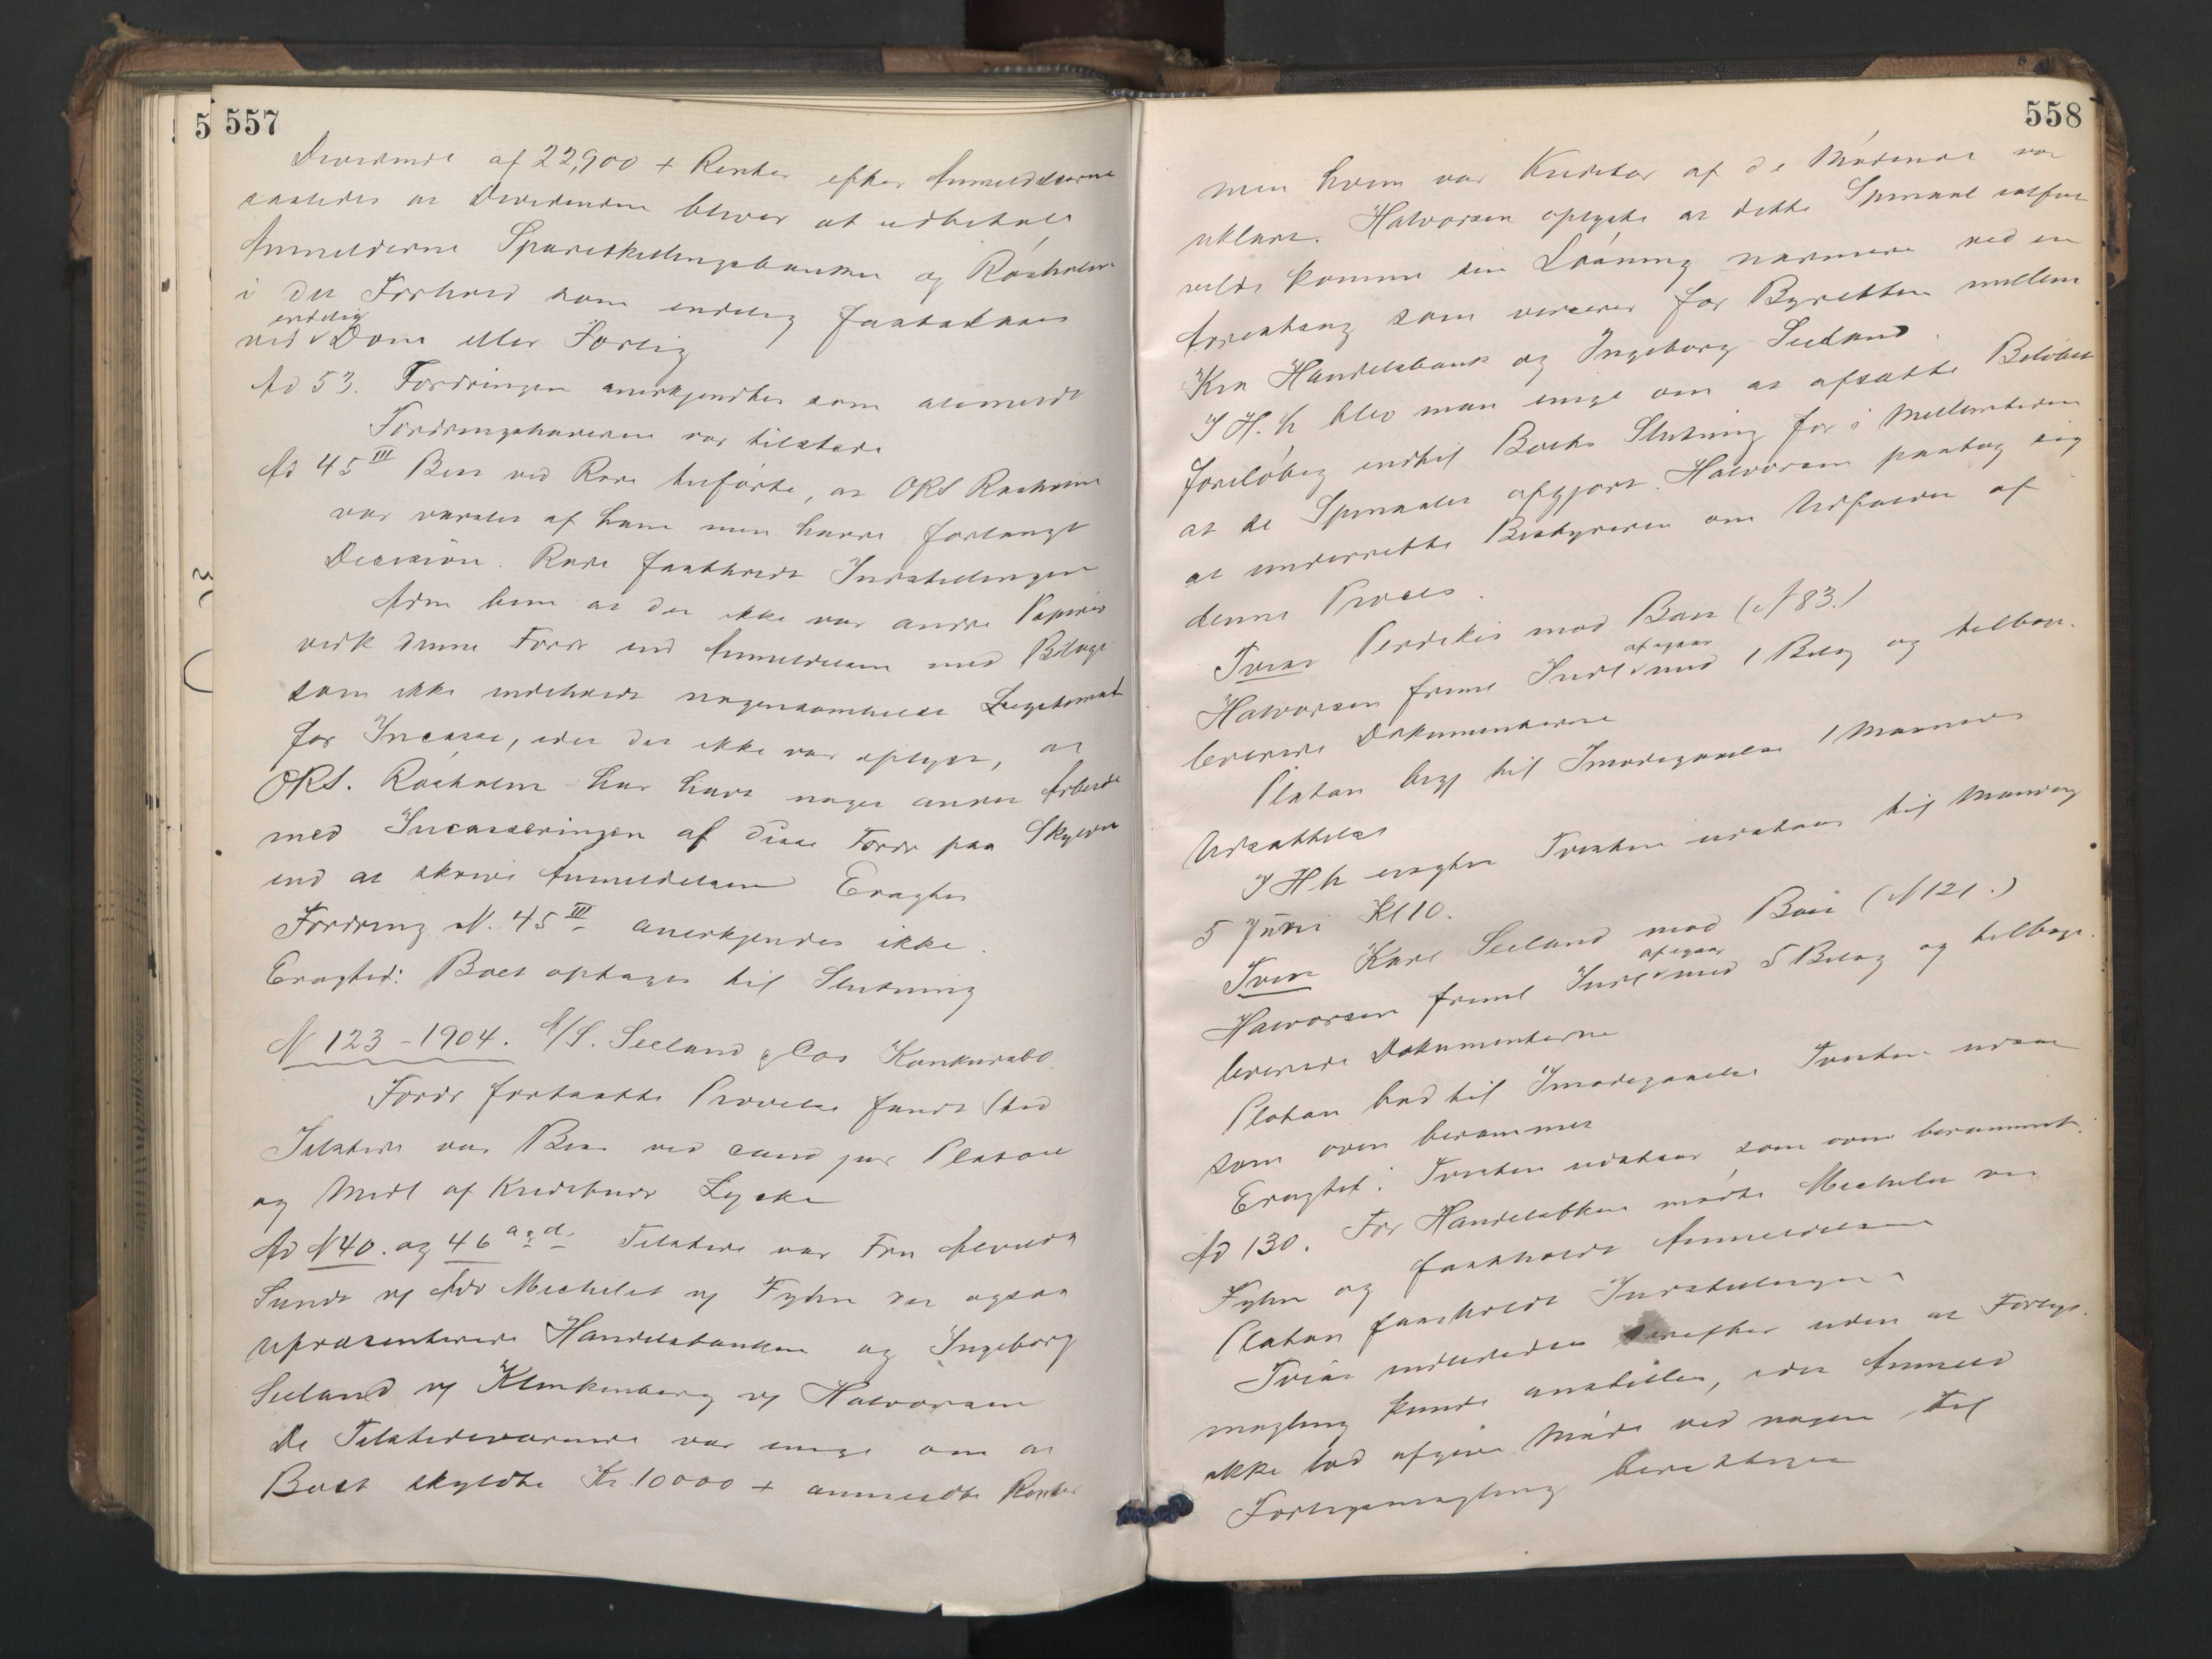 557
Dividende af 22,900 + Renter efter Anmeldelserne
saaledes at Dividenden bliver at udbetale
Anmelderne Spareskillingsbanken og Rosholm
i det Forhold som endelig fastsættes
endelig
ved Dom eller Forlig
Ad 53. Fordringen anerkjendtes som anmeldt
Fordringshaveren var tilstede
Ad 45 III Boet ved Rove anførte, at ORS Rosholm
var varslet af ham men havde forlangt
Decision. Rove fastholdt Indstillingen
Adm bem at der ikke var andre Papirer
vedk denne Fordr end Anmeldelsen med Bilage
som ikke indeholdt nogensomhelst Legitimat
for Incasso, idet det ikke var oplyst, at
ORS. Rosholm har havt noget andet Arbeide
med Incasseringen af disse Fordr paa Skylden
end at skrive Anmeldelsen Eragtes
Fordring N. 45 III anerkjendes ikke.
Eragted: Boet optages til Slutning
N 123 - 1904. A/S. Seeland & Cos Konkursbo
Fordr fortsatte Prøvelse fandt Sted
Tilstede var Boet ved cand jur Platou
og Medl af Kreditudv Lycke
Ad N 40. og 46 a og d. Tilstede var Fru
Sundt v/ Adv Mechelet v/ Fyhn der ogsaa
repræsenterede Handelsbanken og Ingeborg
Seeland v/ Klinkenberg v/ Halvorsen
De Tilstedeværende var enige om at
Boet skyldte Kr. 10000 + anmeldte Renter
558
men hvem var Kreditor af de Mødende var
uklart. Halvorsen oplyste at dette Spørsmaal
vilde komme sin Løsning nærmere ved en
Arrestsag som verserer for Byretten mellem
Kra Handelsbank og Ingeborg Seeland.
I H. t blev man enige om at afsætte Beløbet
foreløbig indtil Boets Slutning for i Mellemtiden
at se Spørsmaalet afgjort. Halvorsen paatog sig
at underrette Bestyreren om Udfaldet af
denne Proces.
Tvist Perdekis mod Boet (N 83.)
af igaar
Halvorsen freml Indl med 1 Bilag og tilbage-
leverede Dokumenterne
Platou begj til Imødegaaelse 1 Maaneds
Udsættelse
I H t eragtes Tvisten udstaar til Mandag
5 Juni Kl 10.
Tvist Karl Seeland mod Boet (N 121.)
af igaar
Halvorsen freml Indl med 5 Bilag og tilbage-
leverede Dokumenterne
Platou bad til Imødegaaelse Tvisten udsat
som oven berammet
Eragted: Tvisten udstaar som oven berammet.
Ad 130. For Handelsbken mødte Mechelet ved
Fyhn og fastholdt Anmeldelsen
Platou fastholdt Indstillingen
Tvist indlededes derefter uden at Forligs-
mægling kunde anstilles, idet Anmeld
ikke lod afgive Møde ved nogen til
Forligsmægling berettiget